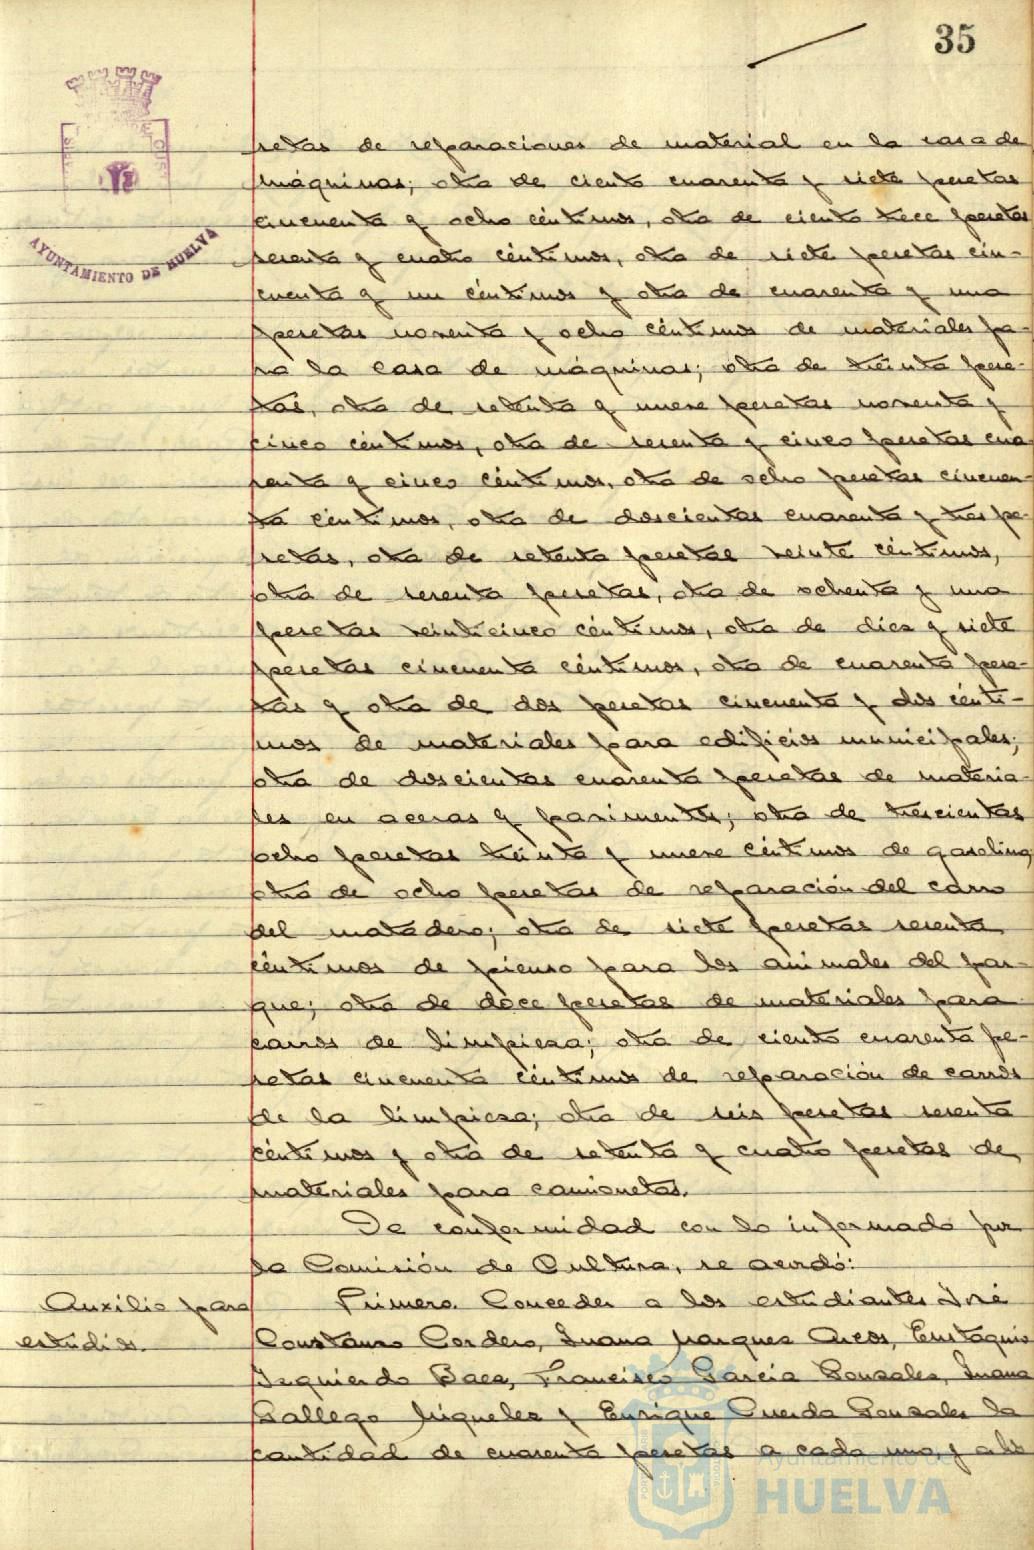 35
AYUNTAMIENTO DE HUELVA
setas de reparaciones de material en la casa de
máquinas; otra de ciento cuarenta y siete pesetas
cincuenta y ocho céntimos, otra de ciento trece pesetas
sesenta y cuatro céntimos, otra de siete pesetas cin-
cuenta y un céntimos y otra de cuarenta y una
pesetas noventa y ocho céntimos de materiales pa-
ra la casa de máquinas; otra de treinta pese-
tas, otra de setenta y nueve pesetas noventa y
cinco céntimos, otra de sesenta y cinco pesetas cua
renta y cinco céntimos, otra de ocho pesetas cincuen-
ta céntimos, otra de doscientas cuarenta y tres pe-
setas, otra de setenta pesetas veinte céntimos,
otra de sesenta pesetas, otra de ochenta y una
pesetas veinticinco céntimos, otra de diez y siete
pesetas cincuenta céntimos, otra de cuarenta pese-
tas y otra de dos pesetas cincuenta y dos cénti-
mos de materiales para edificios municipales;
otra de doscientas cuarenta pesetas de materia-
les en aceras y pavimentos; otra de trescientas
ocho pesetas treinta y nueve céntimos de gasolina;
otra de ocho pesetas de reparación del carro
del matadero; otra de siete pesetas sesenta
céntimos de pienso para los animales del par-
que; otra de doce pesetas de materiales para
carros de limpieza; otra de ciento cuarenta pe-
setas cincuenta céntimos de reparación de carros
de la limpieza; otra de seis pesetas sesenta
céntimos y otra de setenta y cuatro pesetas de
materiales para camionetas.
De conformidad con lo informado por
la Comisión de Cultura, se acordó:
Auxilio para
estudios.
Primero. Conceder a los estudiantes José
Constanso Cordero, Juana Marquez Arcos, Eustaquio
Izquierdo Baez, Francisco García Gonzalez, Juana
Gallego Miguelez y Enrique Cuerda Gonzalez la
cantidad de cuarenta pesetas a cada uno, y a los
Ayuntamiento de
HUELVA